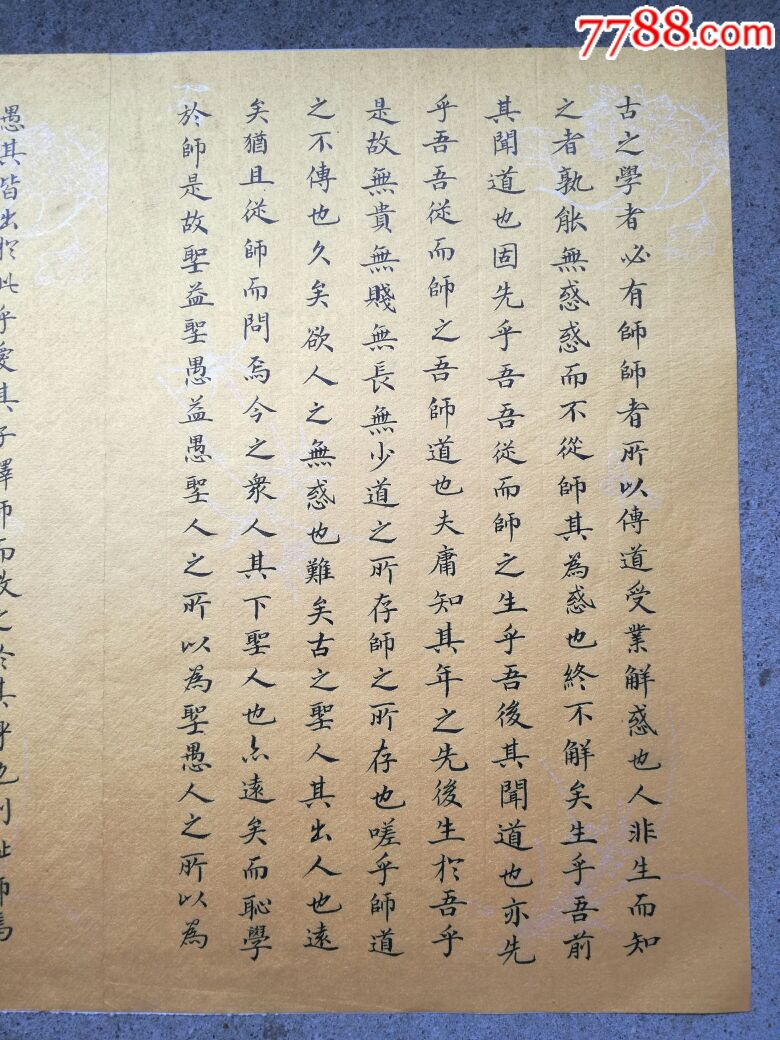 7788.com
古之學者必有師師者所以傳道受業解惑也人非生而知
之者孰能無惑惑而不從師其為惑也終不解矣生乎吾前
其聞道也固先乎吾吾従而師之生乎吾後其聞道也亦先
乎吾吾従而師之吾師道也夫庸知其年之先後生於吾乎
是故無貴無賤無長無少道之所存師之所存也嗟乎師道
之不傳也久矣欲人之無惑也難矣古之聖人其出人也遠
矣猶且従師而問焉今之衆人其下聖人也亦遠矣而恥學
於師是故聖益聖愚益愚聖人之所以為聖愚人之所以為
愚其皆出於此乎愛其子擇師而教之於其身也則恥師焉